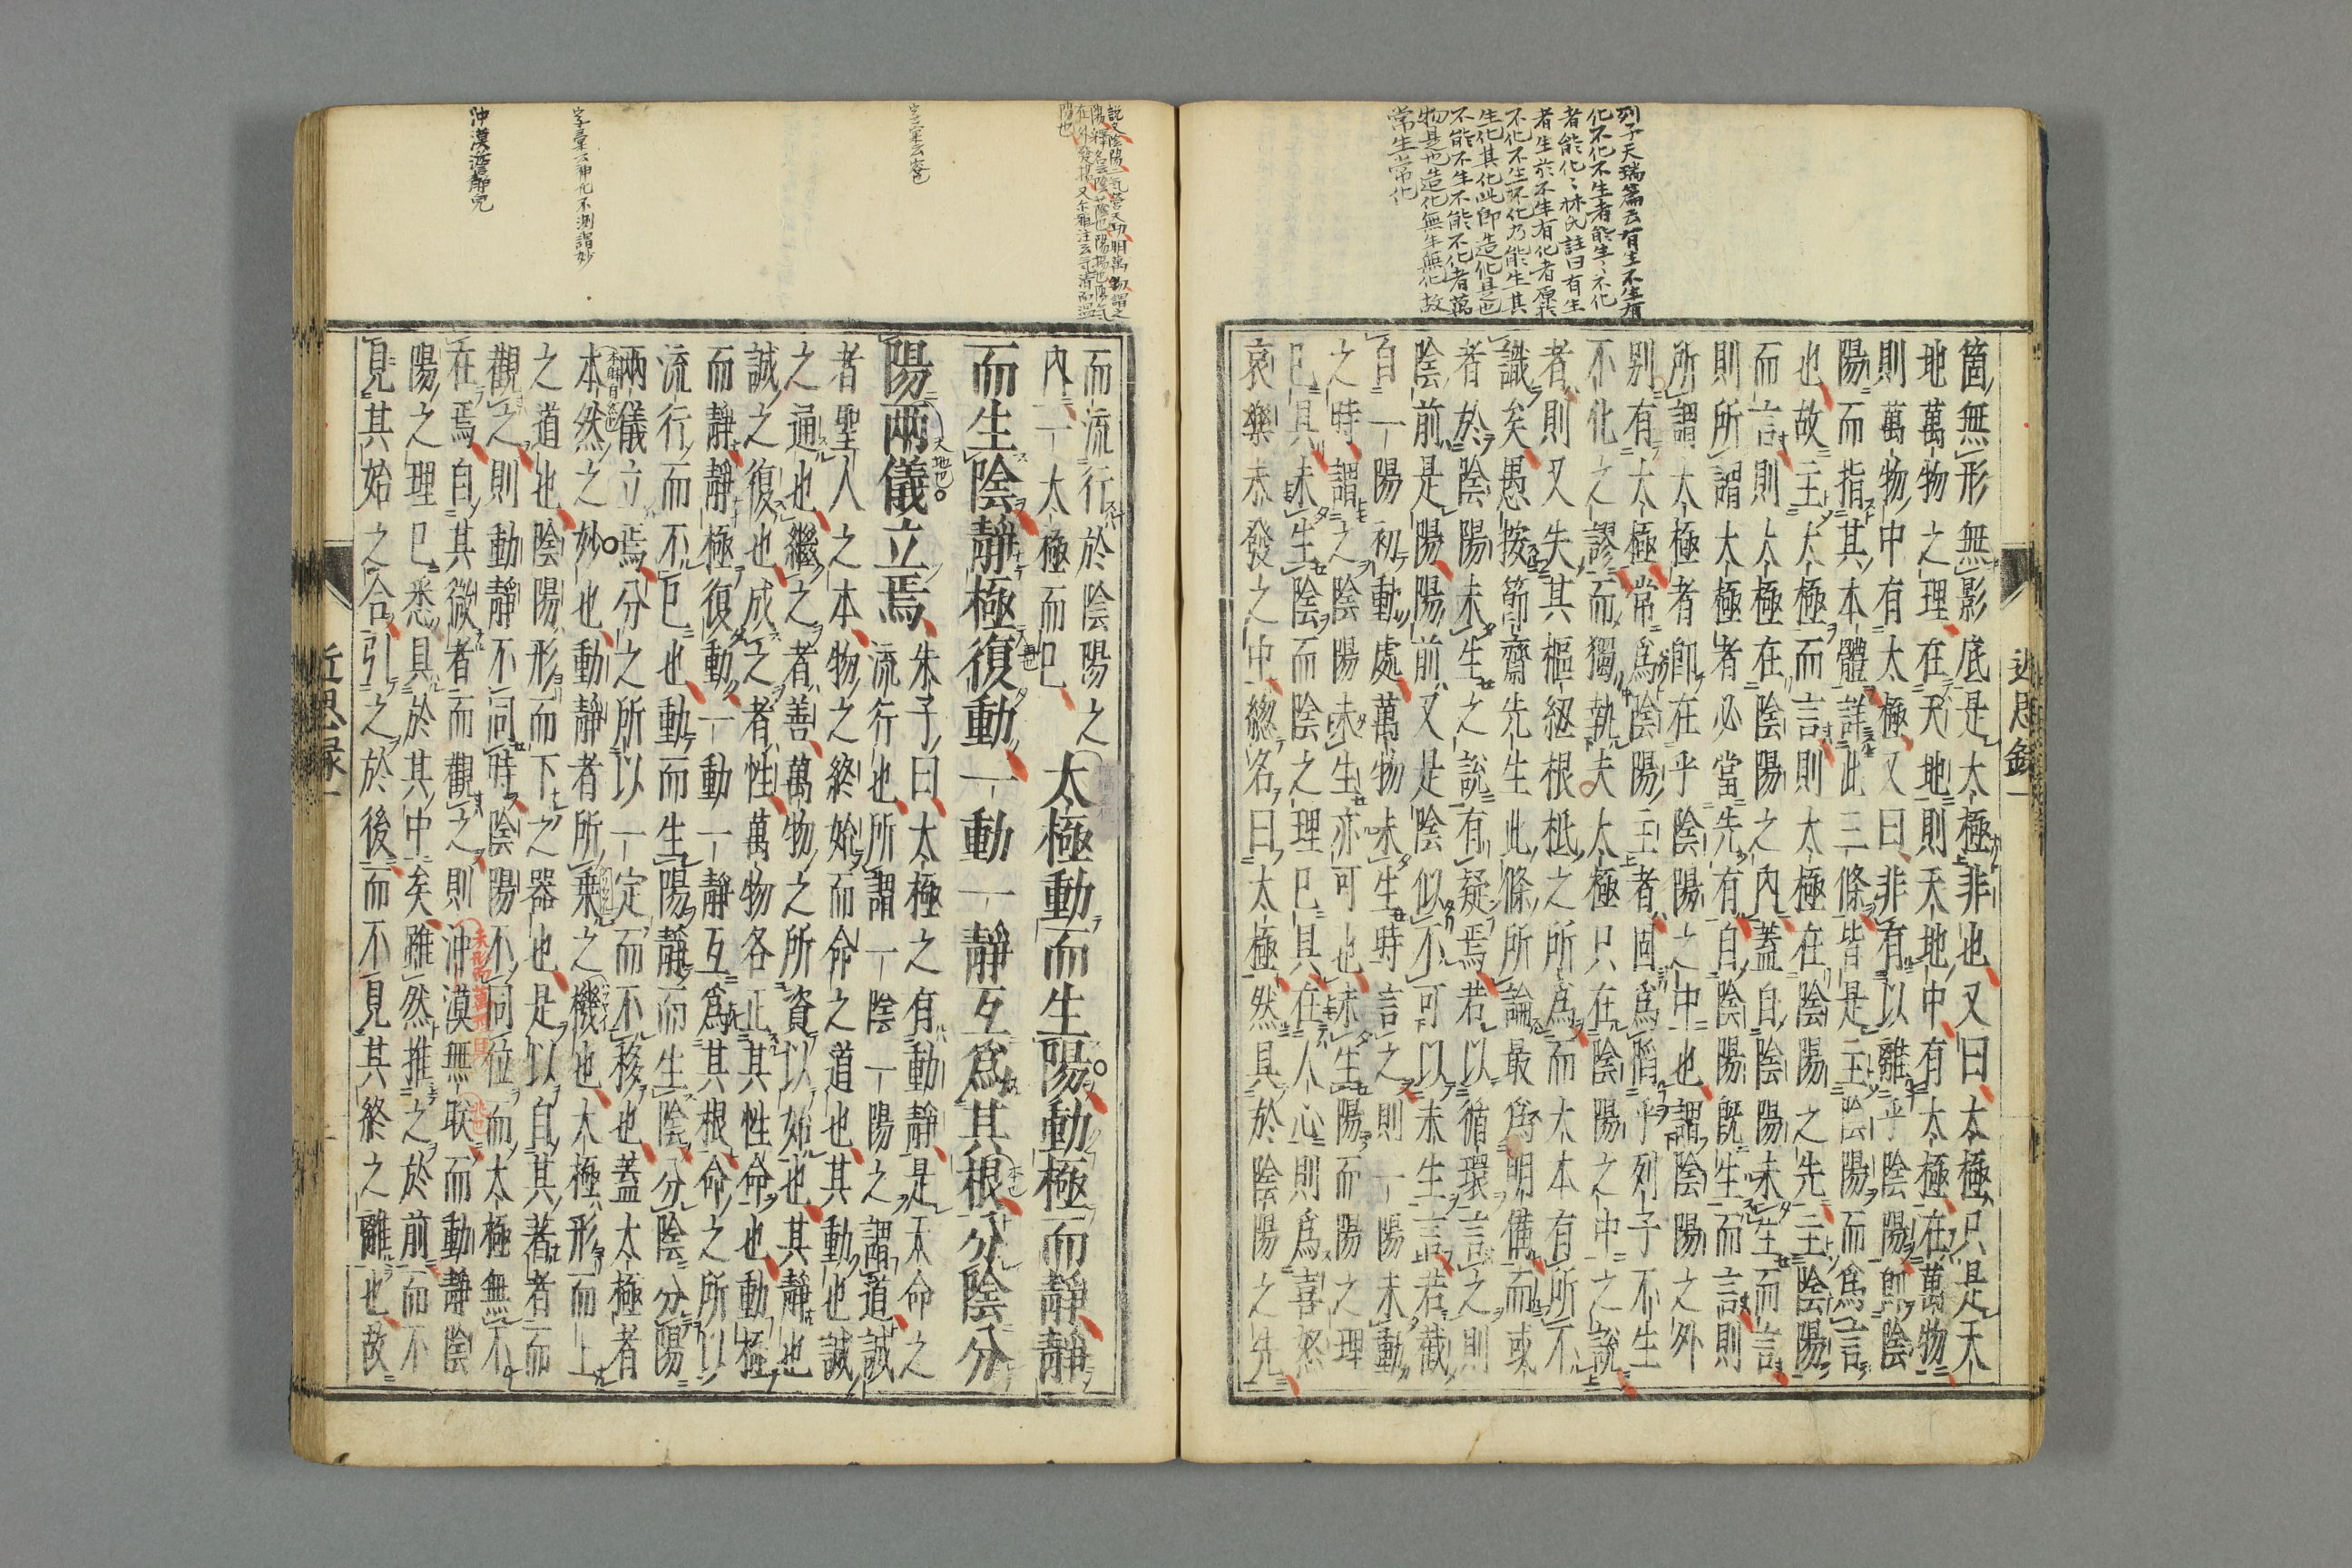 列子天瑞篇云有生不生有
化不化不生者能生〻不化
者能化〻林氏註曰有生
者生於不生有化者原於
不化不生不化乃能生其
生化其化此即造化是也
不能不生不能不化者萬
物是也造化無生無化故
常生常化
箇無形無影底是太極非也又曰太極只是天
地萬物之理在天地則天地中有太極在萬物
則萬物中有太極又曰非有以離乎陰陽即陰
陽而指其本體詳此三條皆是主陰陽而爲言
也故主太極而言則太極在陰陽之先主陰陽
而言則太極在陰陽之內蓋自陰陽未生而言
則所謂太極者必當先有自陰陽既生而言則
所謂太極者即在乎陰陽之中也謂陰陽之外
別有太極常爲陰陽主者固爲陷乎列子不生
不化之謬而獨執夫太極只在陰陽之中之說
者則又失其樞紐根柢之所爲而太本有所不
識矣愚按節齋先生此條所論最爲明備而或
者於陰陽未生之說有疑焉若以循環言之則
陰前是陽陽前又是陰似不可以未生言若截
自一陽初動處萬物未生時言之則一陽未動
之時謂之陰陽未生亦可也未生陽而陽之理
已具未生陰而陰之理已具在人心則爲喜怒
哀樂未發之中總名曰太極然具於陰陽之先
近思錄一
而流行於陰陽之
內一太極而已
太極動而生陽動極而靜靜
而生陰靜極復動一動一靜互爲其根分陰分
陽兩儀立焉
朱子曰太極之有動靜是天命之
流行也所謂一陰一陽之謂道誠
者聖人之本物之終始而命之道也其動也誠
之通也繼之者善萬物之所資以始也其靜也
誠之復也成之者性萬物各正其性命也動極
而靜靜極復動一動一靜互爲其根命之所以
流行而不已也動而生陽靜而生陰分陰分陽
兩儀立焉分之所以一定而不移也蓋太極者
本然之妙也動靜者所乘之機也太極形而上
之道也陰陽形而下之器也是以自其著者而
觀之則動靜不同時陰陽不同位而太極無不
在焉自其微者而觀之則沖漠無朕而動靜陰
陽之理已悉具於其中矣雖然推之於前而不
見其始之合引之於後而不見其終之離也故
近思録一
字彙云神化不測謂妙
沖漠恬靜皃
天地也
本也
未形而萬理具